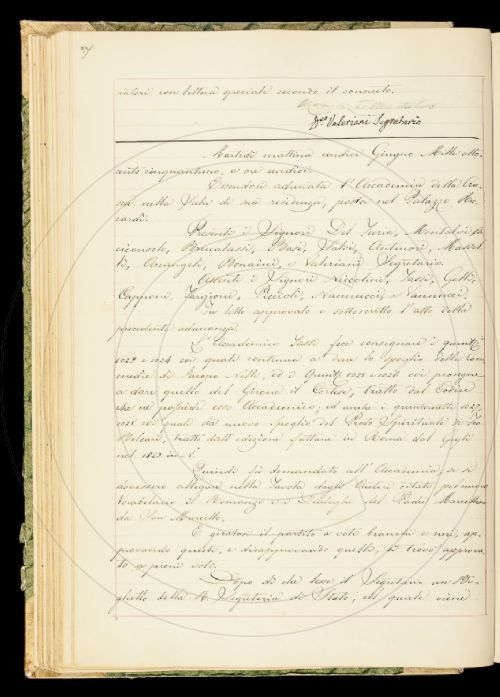 27
autori con lettera speciale secondo il concerto.
Valeriani Segretario
Martedì mattina undici Giugno Mille otto-
cento cinquantuno, a ore undici.
Essendosi adunata l'Accademia della Cru-
sca nella Sala di sua residenza, posta nel Palazzo Ric-
cardi.
Presenti i Signori Del Furia, Montalvi
Brucalassi, Basi, Salvi, Antinori, Massel-
li, Arcangeli, Bonaini, e Valeriani Segretario.
Assenti i Signori Niccolini, Tassi, Gatti,
Capponi, Targioni, Piccioli, Nannucci, e Vannucci.
Fu letto approvato e sottoscritto l'atto della
precedente adunanza.
L'Accademico Tassi fece consegnare i quinti
1023 e 1024 coi quali continua a dare lo spoglio delle Com-
medie di Jacopo Nelli, ed i Quint. 1025 e 1026 coi prosegue
a dare quello del Girone il Cortese, tratto dal Codice
che ne possiede essa Accademia; ed anche i quinternetti 1027
1028 coi quali dà nuovo spoglio del Prato Spirituale di Feo
Belcari, tratti dall'edizione fattasi in Roma dal Gigli
nel 1843
Quindi fu domandato all'Accademia, se si
dovessero allegare nella Tavola degli Autori citati pel nuovo
Vocabolario il Romanzo e i Dialoghi del Padre Marcellino
da San Marcello.
E giratosi il partito a voti bianchi e neri, ap-
provando questi, e disapprovando quelli, si trovò approva-
to a pieni voti.
Dopo di che lesse il Segretario un Bi-
glietto della R. Segreteria di Stato, col quale viene